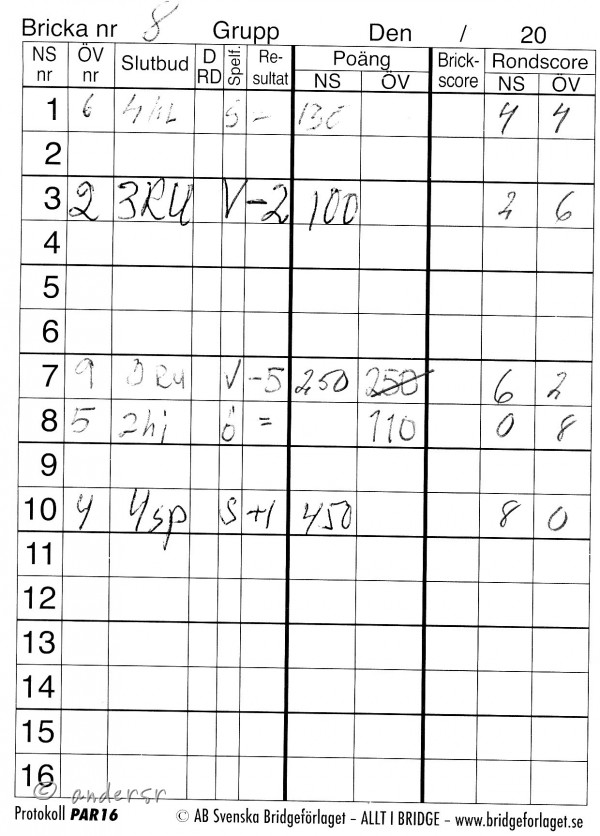 Bricka nr 8 Grupp Den / 20
NS nr ÖV nr Slutbud D RD Spelf. Re-sultat Poäng NS ÖV Brick-score Rondscore NS ÖV
1 6 S - 4 4
2
3 2 3RU V -2 100 2 6
4
5
6
7 9 3RU V -5 250 250 6 2
8 5 2hj ö = 110 0 8
9
10 4 4sp S +1 450 8 0
11
12
13
14
15
16
© andersr
Protokoll PAR16 © AB Svenska Bridgeförlaget – ALLT I BRIDGE – www.bridgeforlaget.se